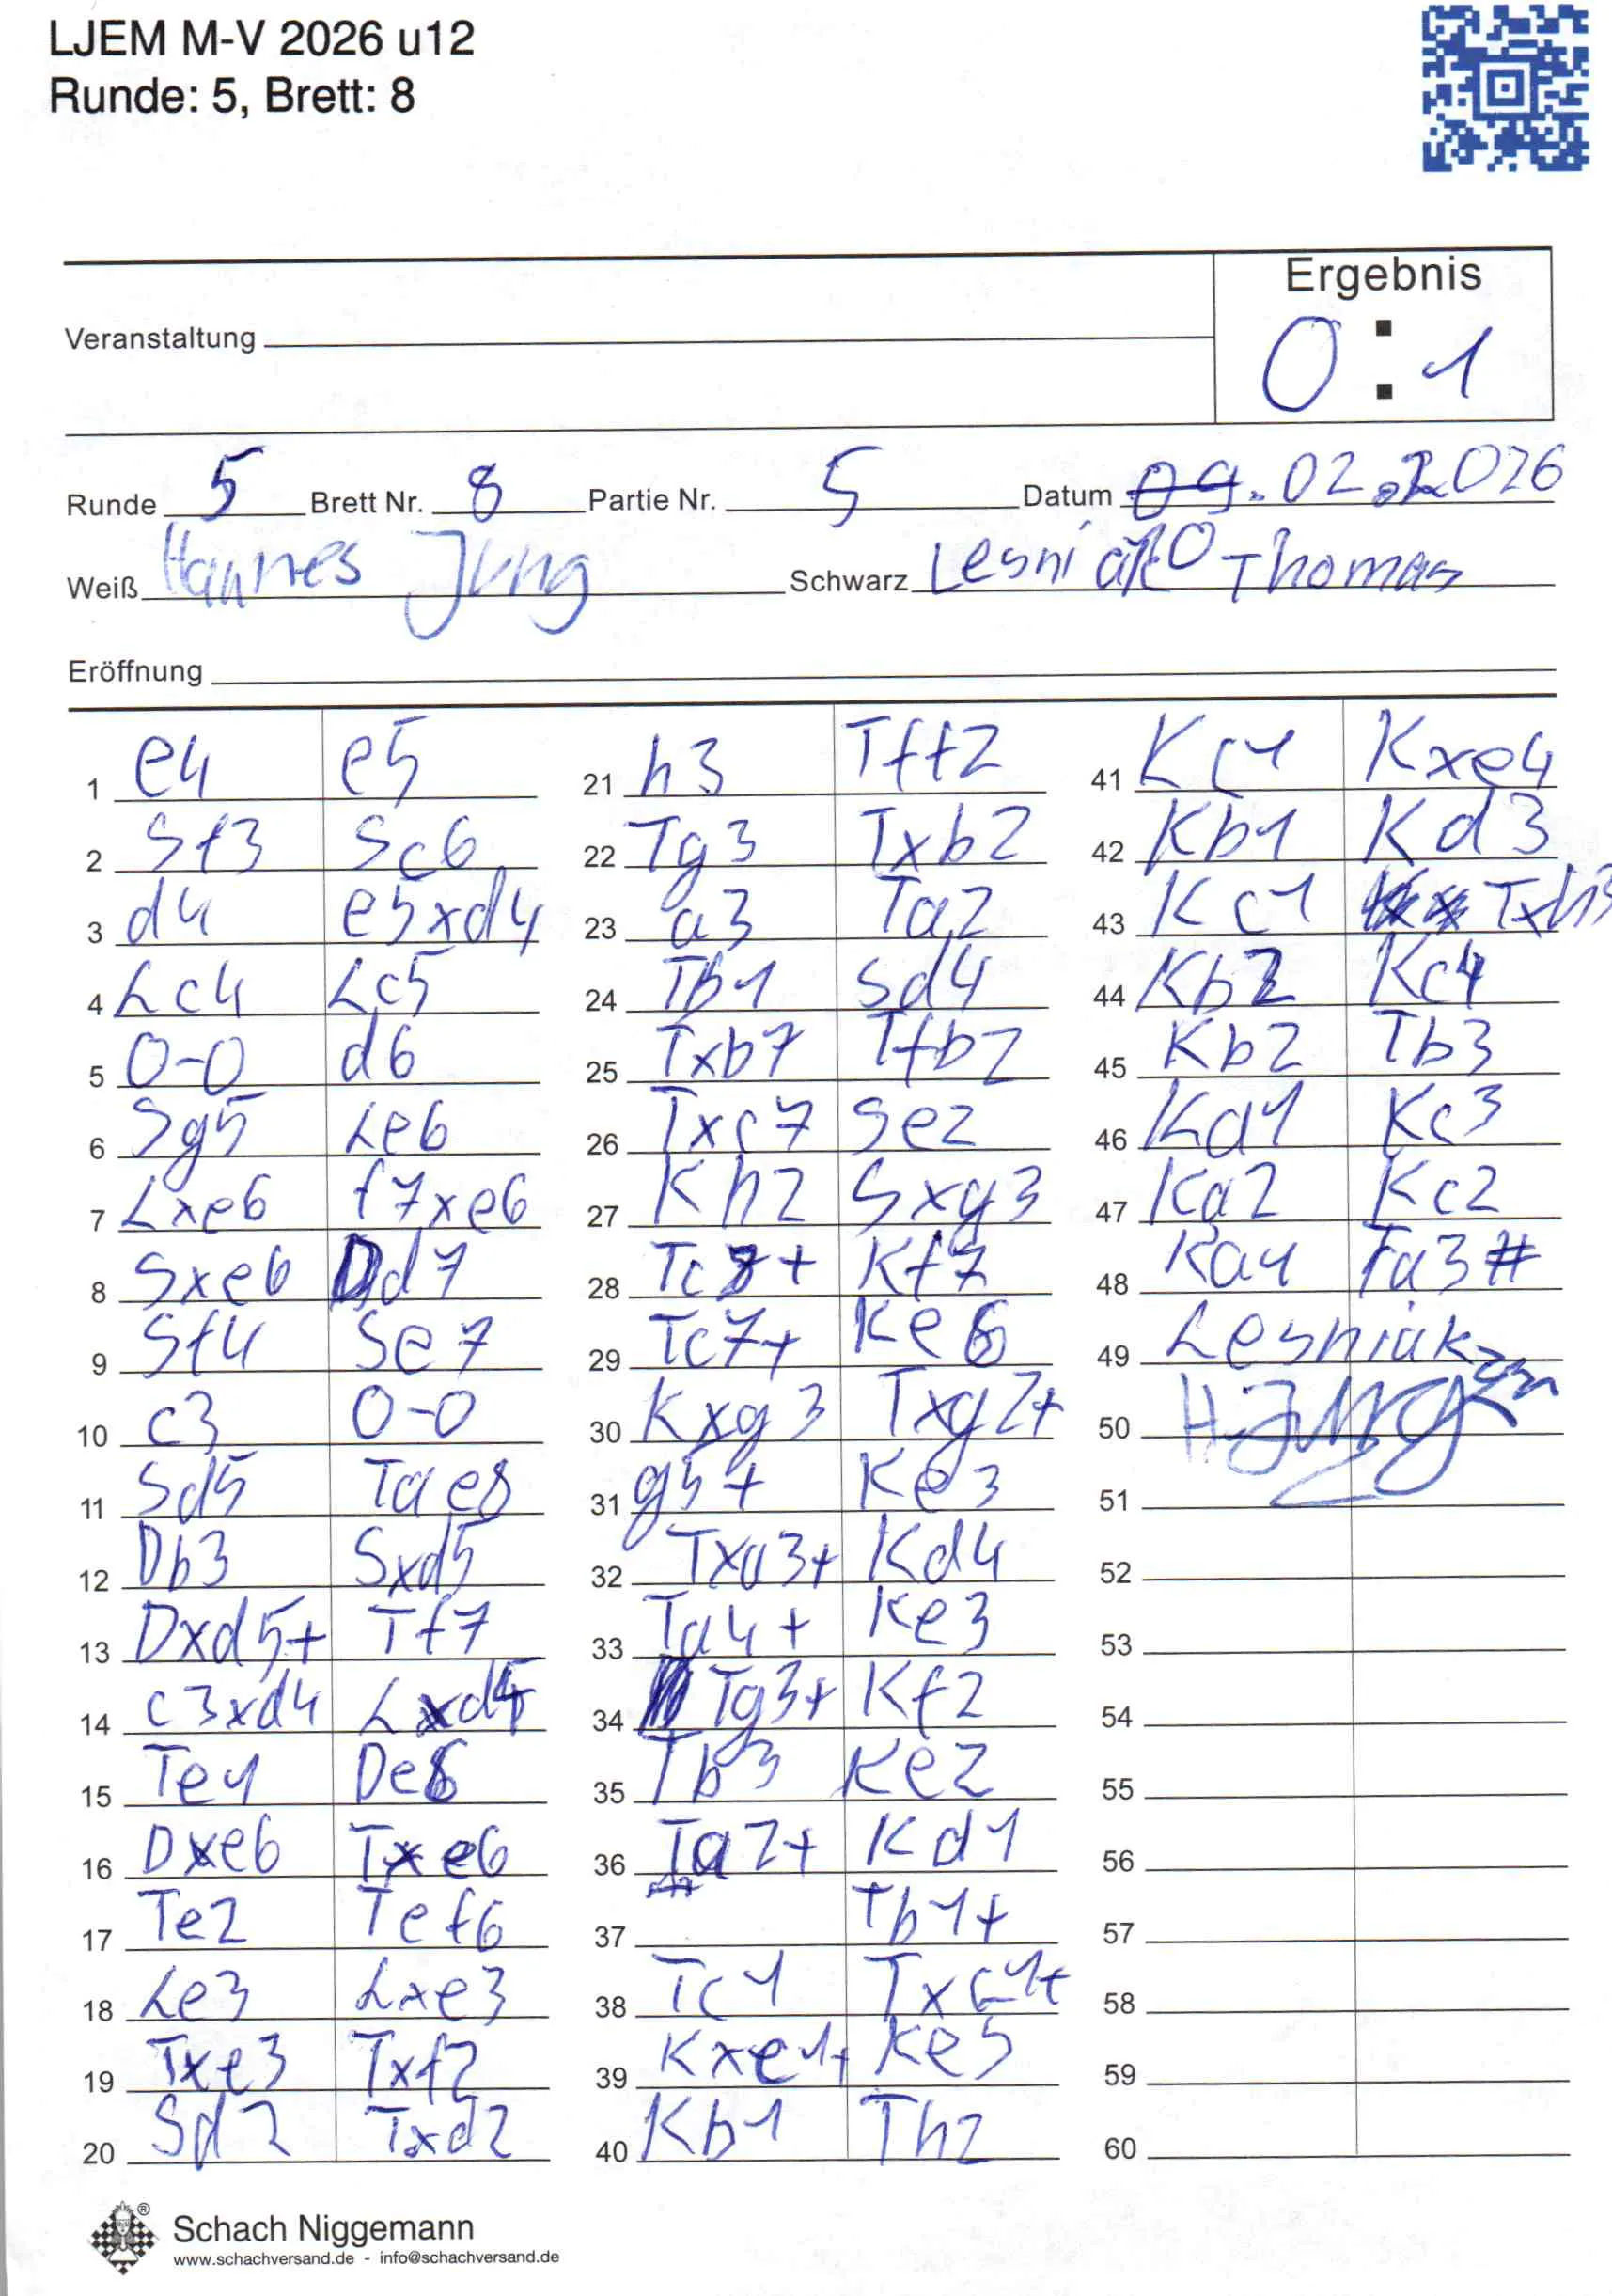 LJEM M-V 2026 u12
Runde: 5, Brett: 8
Ergebnis
Veranstaltung
0 : 1
Runde 5 Brett Nr. 8 Partie Nr. 5 Datum 09.02.2026
Weiß Hannes Jung Schwarz Lesniak Thomas
Eröffnung
1 e4 e5
2 Sf3 Sc6
3 d4 e5xd4
4 Lc4 Lc5
5 0-0 d6
6 Sg5 Le6
7 Lxe6 f7xe6
8 Sxe6 Dd7
9 Sf4 Se7
10 c3 0-0
11 Sd5 Tae8
12 Db3 Sxd5
13 Dxd5+ Tf7
14 c3xd4 Lxd4
15 Te1 De6
16 Dxe6 Txe6
17 Te2 Tef6
18 Le3 Lxe3
19 Txe3 Txf2
20 Sd2 Txd2
21 h3 Tff2
22 Tg3 Txb2
23 a3 Ta2
24 Tb1 Sd4
25 Txb7 Tfb2
26 Txc7 Se2
27 Kh2 Sxg3
28 Tc8+ Kf7
29 Tc7+ Ke6
30 Kxg3 Txg2+
31 g5+ Ke3
32 Txa3+ Kd4
33 Ta4+ Ke3
34 Tg3+ Kf2
35 Tb3 Ke2
36 Ta2+ Kd1
37 Tb1+
38 Tc1 Txc1+
39 Kxe1+ Ke5
40 Kb1 Th2
41 Kc1 Kxe4
42 Kb1 Kd3
43 Kc1 Txh3
44 Kb2 Kc4
45 Kb2 Tb3
46 Ka1 Kc3
47 Ka2 Kc2
48 Ka1 Ta3#
49 Lesniak
50 H. Jung
51
52
53
54
55
56
57
58
59
60
Schach Niggemann
www.schachversand.de - info@schachversand.de